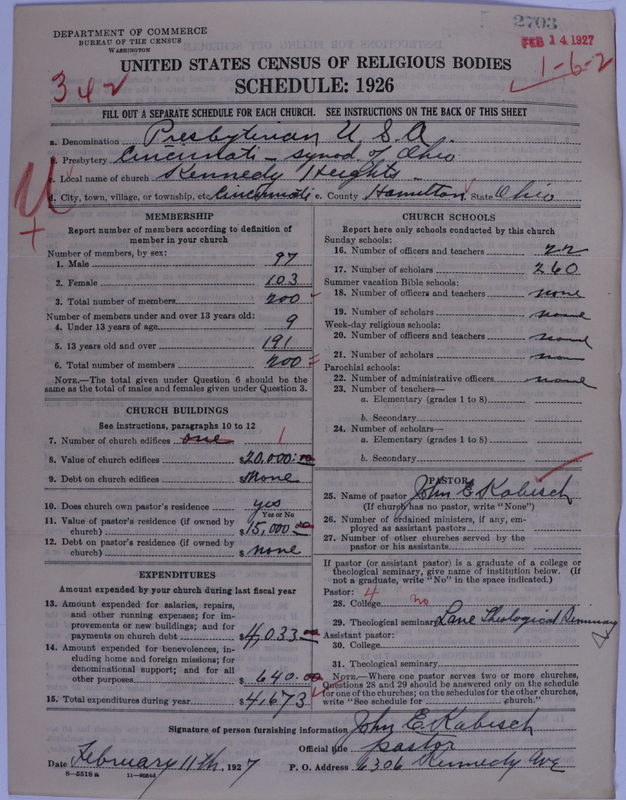 2703
FEB 14 1927
DEPARTMENT OF COMMERCE
BUREAU OF THE CENSUS
WASHINGTON
UNITED STATES CENSUS OF RELIGIOUS BODIES
SCHEDULE: 1926
342
1-6-2
FILL OUT A SEPARATE SCHEDULE FOR EACH CHURCH. SEE INSTRUCTIONS ON THE BACK OF THIS SHEET
a. Denomination Presbyterian U.S.A.
b. Presbytery Cincinnati - synod of Ohio
c. Local name of church Kennedy Heights
d. City, town, village, or township, etc. Cincinnati e. County Hamilton State Ohio
MEMBERSHIP
Report number of members according to definition of
member in your church
Number of members, by sex:
1. Male 97
2. Female 103
3. Total number of members 200
Number of members under and over 13 years old:
4. Under 13 years of age 9
5. 13 years old and over 191
6. Total number of members 200
NOTE.—The total given under Question 6 should be the
same as the total of males and females given under Question 3.
CHURCH BUILDINGS
See instructions, paragraphs 10 to 12
7. Number of church edifices one 1
8. Value of church edifices $20,000.00
9. Debt on church edifices $None
10. Does church own pastor's residence yes
Yes or No
11. Value of pastor's residence (if owned by
church) $15,000.00
12. Debt on pastor's residence (if owned by
church) $none
EXPENDITURES
Amount expended by your church during last fiscal year
13. Amount expended for salaries, repairs,
and other running expenses; for im-
provements or new buildings; and for
payments on church debt $4,033.00
14. Amount expended for benevolences, in-
cluding home and foreign missions; for
denominational support; and for all
other purposes $640.00
15. Total expenditures during year $4,673
CHURCH SCHOOLS
Report here only schools conducted by this church
Sunday schools:
16. Number of officers and teachers 22
17. Number of scholars 260
Summer vacation Bible schools:
18. Number of officers and teachers none
19. Number of scholars none
Week-day religious schools:
20. Number of officers and teachers none
21. Number of scholars non
Parochial schools:
22. Number of administrative officers none
23. Number of teachers—
a. Elementary (grades 1 to 8)
b. Secondary
24. Number of scholars—
a. Elementary (grades 1 to 8)
b. Secondary
PASTOR
25. Name of pastor John E Kabisch
(If church has no pastor, write "None")
26. Number of ordained ministers, if any, em-
ployed as assistant pastors
27. Number of other churches served by the
pastor or his assistants
If pastor (or assistant pastor) is a graduate of a college or
theological seminary, give name of institution below. (If
not a graduate, write "No" in the space indicated.)
Pastor: 4
28. College no
29. Theological seminary Lane Theological Seminary
Assistant pastor:
30. College
31. Theological seminary
NOTE.—Where one pastor serves two or more churches,
Questions 28 and 29 should be answered only on the schedule
for one of the churches; on the schedules for the other churches,
write "See schedule for church."
Signature of person furnishing information John E Kabisch
Official title pastor
Date February 11th, 1927 P. O. Address 6306 Kennedy Ave
8-5518a 11-9054a